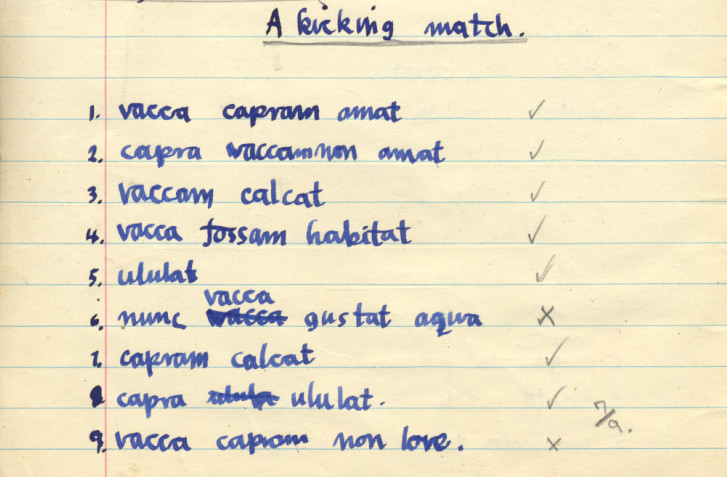 A kicking match.
1. vacca capram amat ✓
2. capra vaccam non amat ✓
3. vaccam calcat ✓
4. vacca fossam habitat ✓
5. ululat ✓
vacca
6. nunc gustat aqua ✗
7. capram calcat ✓
8 capra ululat. ✓
7/9.
9. vacca capram non love. ✗